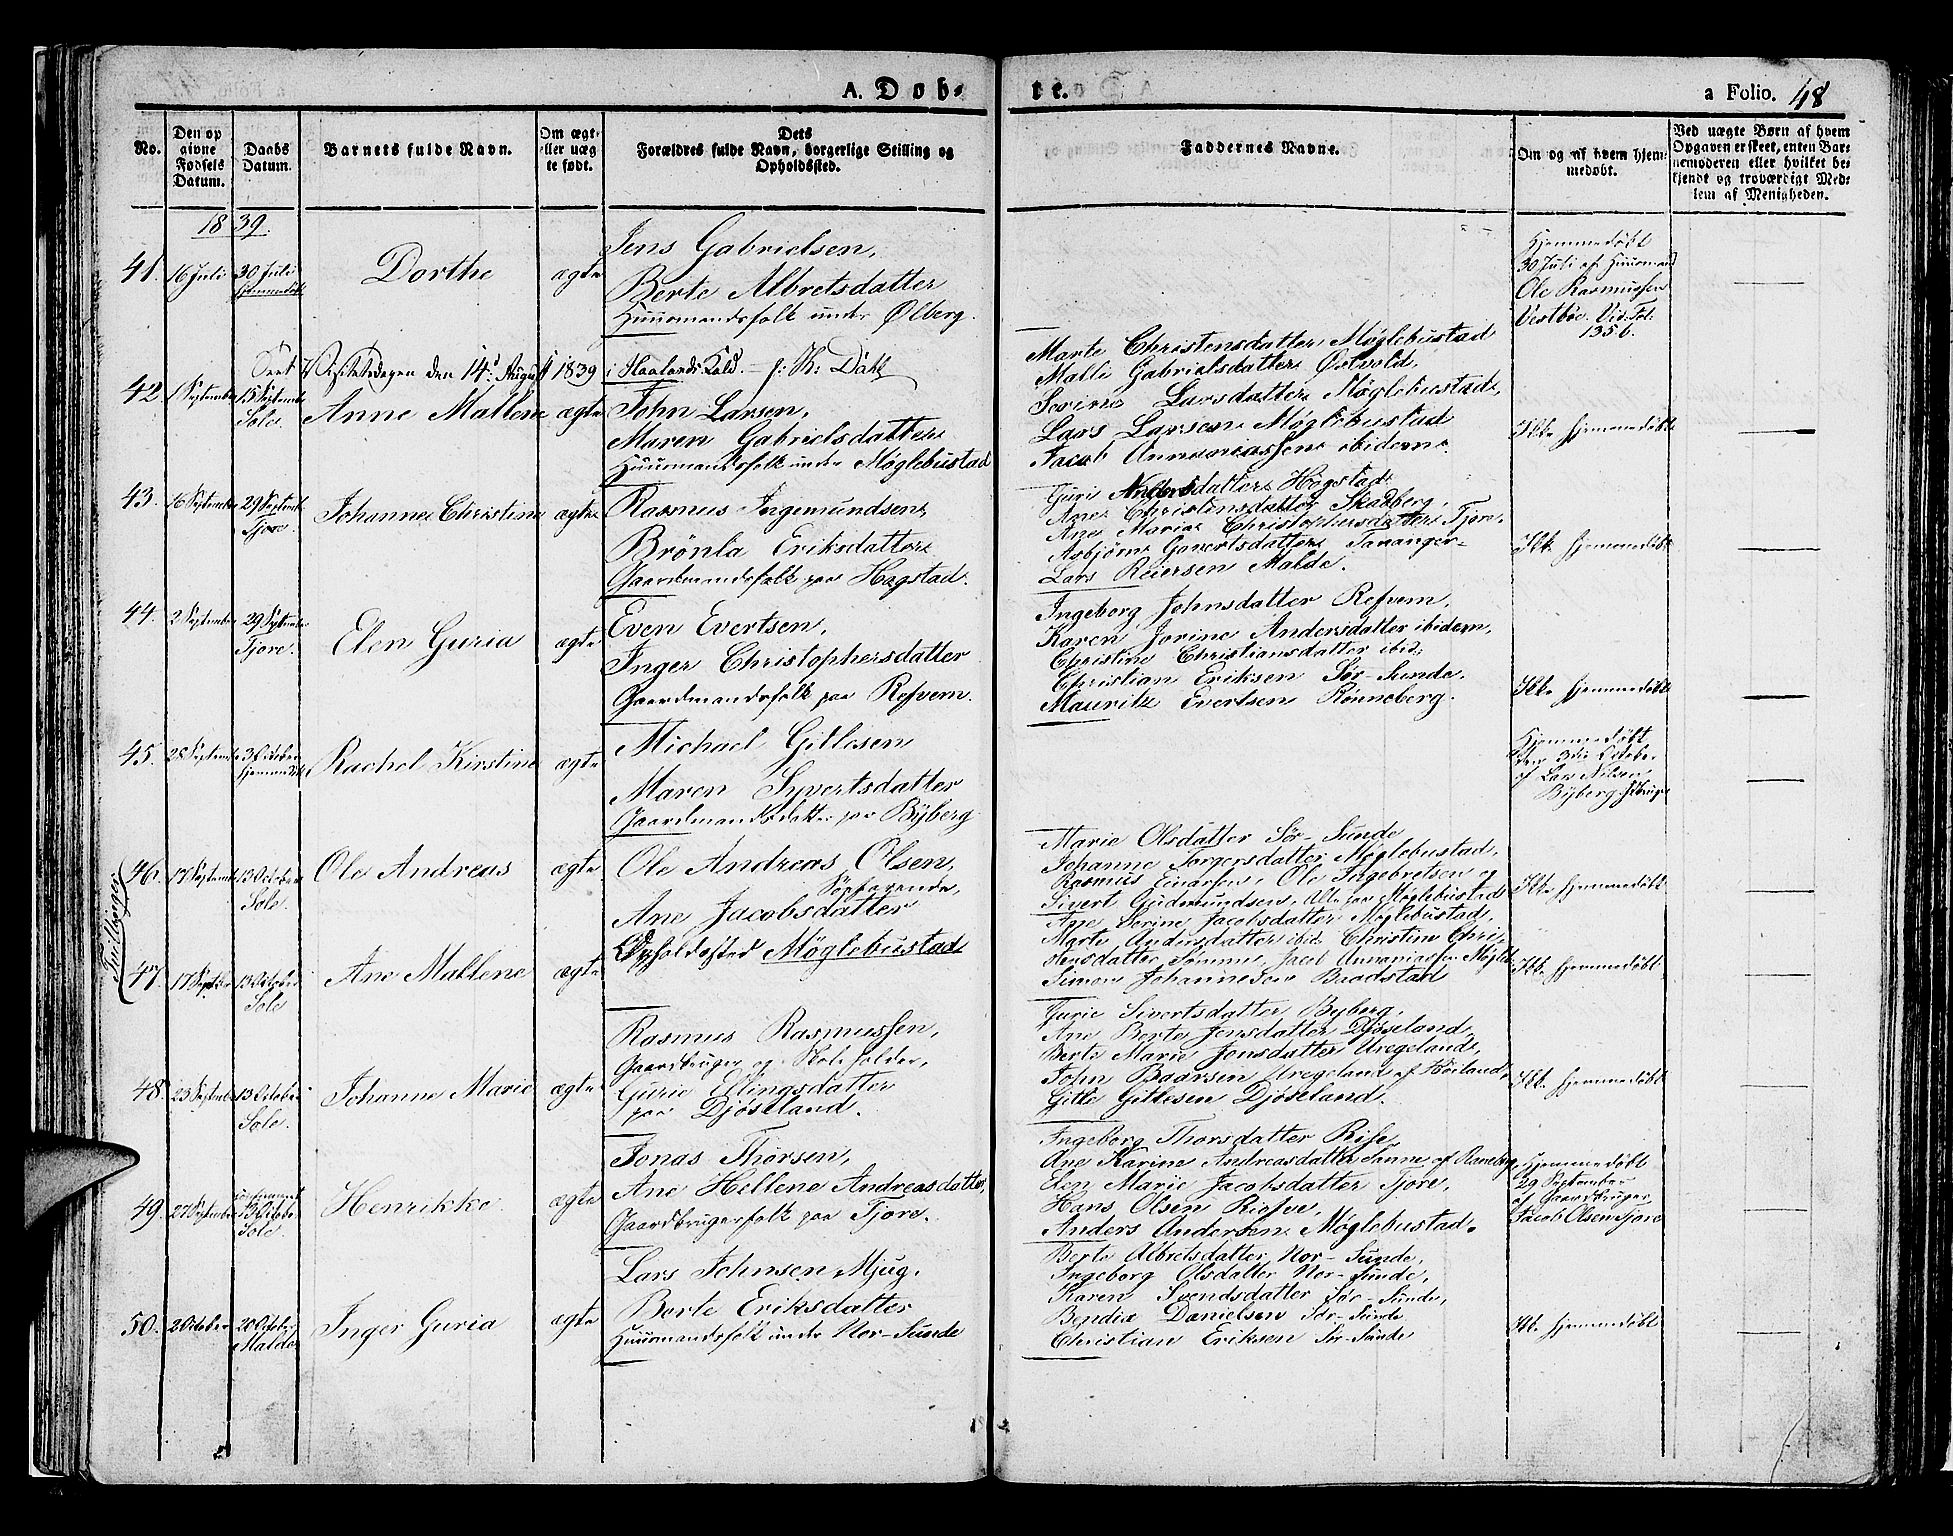 A. Döb-
te.
a Folio. 48
No.
Den op
givne
Fødsels
Datum.
Daabs
Datum.
Barnets fulde Navn.
Om ægt-
eller uæg
te født.
Dets
Forældres fulde Navn, borgerlige Stilling og
Opholdssted.
Faddernes Navne.
Om og af hvem hjem-
medøbt.
Ved uægte Børn af hvem
Opgaven er skeet, enten Bar-
nemoderen eller hvilket be-
kjendt og troværdigt Med-
lem af Menigheden.
1839.
41.
16 Juli
30 Juli
hjemmedöbt
Dorthe
ægte
Jens Gabrielsen,
Berte Albretsdatter
Huusmandsfolk under Ølberg.
Hjemmedöbt
30 Juli af Huusmand
Ole Rasmussen
Vestböe. Vid. Fol.
135 b.
Seet Visitatsdagen den 14d August 1839 i Haalands Kald. - J: K: Dahl
42
1 September
15 Septembr
Sole.
Anne Mallene
ægte
John Larsen,
Maren Gabrielsdatter
Huusmandsfolk under Møglebustad
Marte Christensdatter Møglebustad
Malli Gabrielsdatter Østvold,
Serine Larsdatter Møglebustad,
Lars Larsen Møglebustad
Jacob Annaniassen ibidem.
Ikke hjemmedöbt
43.
16 September
29 Septemb
Tjore.
Johanne Christine
ægte
Rasmus Ingemundsen
Brönla Eriksdatter
Gaardmandsfolk paa Hogstad.
Guri Andersdatter Hogstad
Ane Christensdatter Skadberg,
Ane Marie Christophersdatter Tjore,
Asbjöne Govertsdatter Tananger
Lars Reiersen Malde.
Ikke hjemmedöbt
44.
2 September
29 September
Tjore.
Elen Guria
ægte
Even Evertsen,
Inger Christophersdatter
Gaardmandsfolk paa Refvem.
Ingeborg Johnsdatter Refvem,
Karen Jorine Andersdatter ibidem,
Christine Christiansdatter ibid:
Christian Eriksen Sör-Sunde,
Mauritz Evertsen Rönneberg.
Ikke hjemmedöbt
45.
28 Septembr
3 October
hjemmedöbt
Rachel Kirstine
ægte
Michael Gitlesen
Maren Syvertsdatter
Gaardmandsfolk paa Byberg
Hjemmedöbt
den 3die October
af Lars Nilsen
Byberg
Tvillinger
46.
17 Septembr
13 October
Sole.
Ole Andreas
ægte
Ole Andreas Olsen,
Söefarende,
Ane Jacobsdatter
Opholdssted Møglebustad
Marie Olsdatter Sör-Sunde
Johanne Torgersdatter Møglebustad,
Rasmus Einarsen, Ole Ingebretsen og
Sivert Gudmundsen, Alle paa Møglebustad
Ikke hjemmedöbt
47.
17 Septbr
13 October
Sole
Ane Mallene
ægte
Ane Serine Jacobsdatter Møglebustad,
Marte Andersdatter ibid: Christine Chri-
stensdatter Sömme, Jacob Annaniassen Mögleb:
Simon Johannesen Baadstad
Ikke hjemmedöbt
48.
23 Septembr
13 October
Sole.
Johanne Marie
ægte
Rasmus Rasmussen,
Gaardbruger og Skoleholder,
Gurie Elingsdatter
paa Djöseland.
Gurie Sivertsdatter Byberg,
Ane Berte Jonsdatter Djöseland,
Berte Marie Jonsdatter Uregeland,
John Baarsen Uregeland af Höiland,
Gitle Gitlesen Djöseland.
Ikke hjemmedöbt
49.
27 September
13 October
Sole.
Henrikke
ægte
Jonas Thorsen,
Ane Hellene Andreasdatter,
Gaardbrugerfolk paa Tjore.
Ingeborg Thorsdatter Rise
Ane Karine Andreasdatter Sömme af Raneberg,
Elen Marie Jacobsdatter Tjore,
Hans Olsen
Anders Andersen Møglebustad.
Hjemmedöbt
29 September
af Gaardbruger
Jacob Olsen Tjore
50.
2 October
20 October
Malde
Inger Guria
ægte
Lars Johnsen Mjug.
Berte Eriksdatter
Huusmandsfolk under Nor-Sunde
Berte Albretsdatter Nor-Sunde,
Ingeborg Olsdatter Nor-Sunde,
Karen Svendsdatter Sör-Sunde,
Bendix Danielsen Sör-Sunde
Christian Eriksen Sör-Sunde
Ikke hjemmedöbt